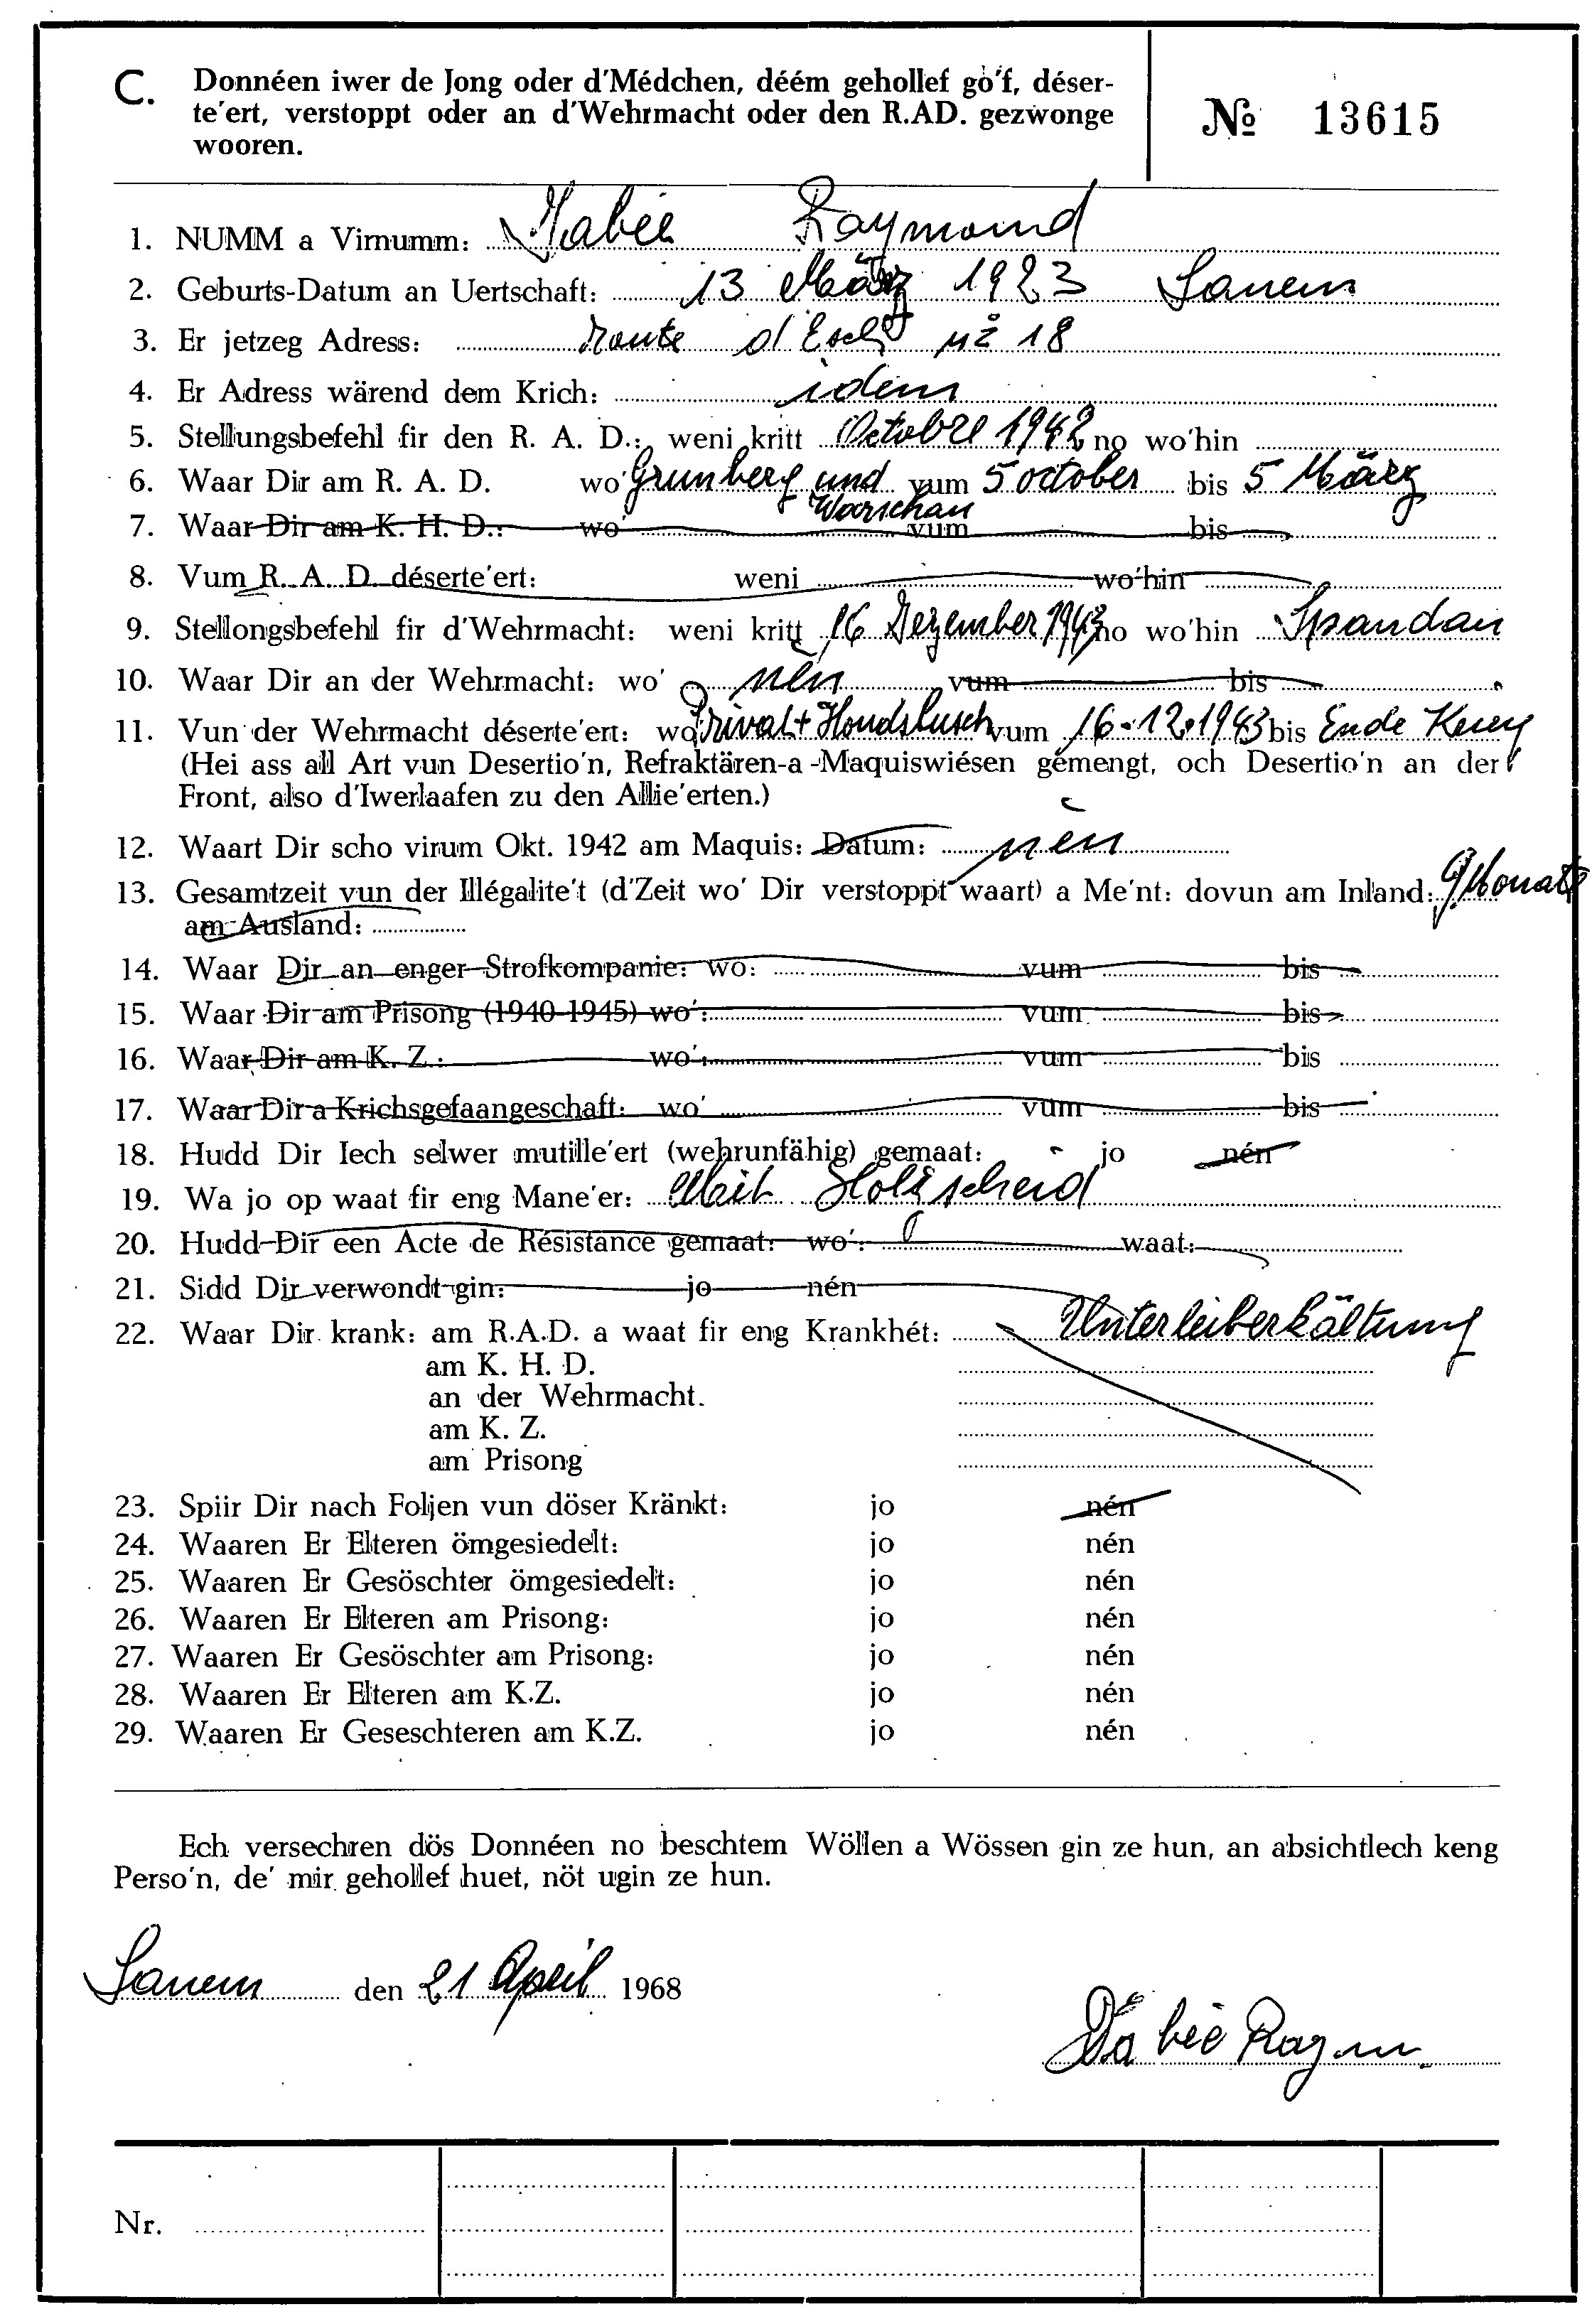 C. Donnéen iwer de Jong oder d'Médchen, déém gehollef gò'f, déser-
te'ert, verstoppt oder an d'Wehrmacht oder den R.AD. gezwonge
wooren.
№ 13615
1. NUMM a Virnumm: Raymond
2. Geburts-Datum an Uertschaft: 13 März 1923 Sanem
3. Er jetzeg Adress: Route d'Esch No 18
4. Er Adress wärend dem Krich: idem
5. Stellungsbefehl fir den R. A. D.: weni kritt Octobre 1942 no wo'hin
6. Waar Dir am R. A. D. wo' Grunberg und Warschau vum 5 october bis 5 März
7. Waar Dir am K. H. D.: wo' vum bis
8. Vum R. A. D. déserte'ert: weni wo'hin
9. Stellongsbefehl fir d'Wehrmacht: weni kritt 16 Dezember 1943 no wo'hin Spandau
10. Waar Dir an der Wehrmacht: wo' nèn vum bis
11. Vun der Wehrmacht déserte'ert: wo' Privat + Hondsbusch vum 16.12.1943 bis Ende
(Hei ass all Art vun Desertio'n, Refraktären-a -Maquiswiésen gemengt, och Desertio'n an der
Front, also d'Iwerlaafen zu den Allie'erten.)
12. Waart Dir scho virum Okt. 1942 am Maquis: Datum: nèn
13. Gesamtzeit vun der Illégalite't (d'Zeit wo' Dir verstoppt waart) a Me'nt: dovun am Inland: 9 Monate
am Ausland:
14. Waar Dir an enger Strofkompanie: wo: vum bis
15. Waar Dir am Prisong (1940-1945) wo': vum bis
16. Waar Dir am K. Z.: wo': vum bis
17. Waar Dir a Krichsgefaangeschaft: wo' vum bis
18. Hudd Dir Iech selwer mutille'ert (wehrunfähig) gemaat: jo nén
19. Wa jo op waat fir eng Mane'er: Mit
20. Hudd Dir een Acte de Résistance gemaat: wo': waat:
21. Sidd Dir verwondt gin: jo nén
22. Waar Dir krank: am R.A.D. a waat fir eng Krankhét: Unterleiberkältung
am K. H. D.
an der Wehrmacht.
am K. Z.
am Prisong
23. Spiir Dir nach Foljen vun döser Kränkt: jo nén
24. Waaren Er Elteren ömgesiedelt: jo nén
25. Waaren Er Gesöschter ömgesiedelt: jo nén
26. Waaren Er Elteren am Prisong: jo nén
27. Waaren Er Gesöschter am Prisong: jo nén
28. Waaren Er Elteren am K.Z. jo nén
29. Waaren Er Geseschteren am K.Z. jo nén
Ech versechren dös Donnéen no beschtem Wöllen a Wössen gin ze hun, an absichtlech keng
Perso'n, de' mir gehollef huet, nöt ugin ze hun.
Sanem den 21 April 1968
Raym.
Nr.